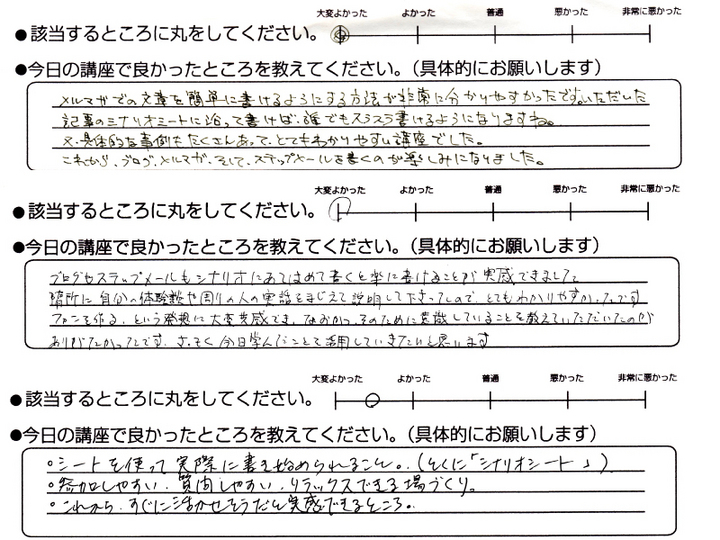 大変よかった よかった 普通 悪かった 非常に悪かった
●該当するところに丸をしてください。
●今日の講座で良かったところを教えてください。（具体的にお願いします）
メルマガでの文章を簡単に書けるようにする方法が非常に分かりやすかったです。いただいた
記事のシナリオシートに沿って書けば、誰でもスラスラ書けるようになりますね。
又、具体的な事例もたくさんあって、とてもわかりやすい講座でした。
これから、ブログ、メルマガ、そして、ステップメールを書くのが楽しみになりました。
大変よかった よかった 普通 悪かった 非常に悪かった
●該当するところに丸をしてください。
●今日の講座で良かったところを教えてください。（具体的にお願いします）
ブログやステップメールもシナリオにあてはめて書くと楽に書けることが実感できました
随所に自分の体験談や周りの人の実話をまじえて説明して下さったので、とてもわかりやすかったです
ファンを作る、という発想に大変共感でき、なおかつ、そのために意識していることを教えていただいたのが
ありがたかったです。さっそく今日学んだことを活用していきたいと思います
大変よかった よかった 普通 悪かった 非常に悪かった
●該当するところに丸をしてください。
●今日の講座で良かったところを教えてください。（具体的にお願いします）
○シートを使って実際に書き始められること。（とくに「シナリオシート」）
○参加しやすい、質問しやすい、リラックスできる場づくり。
○これから、すぐに活かせそうだと実感できるところ。